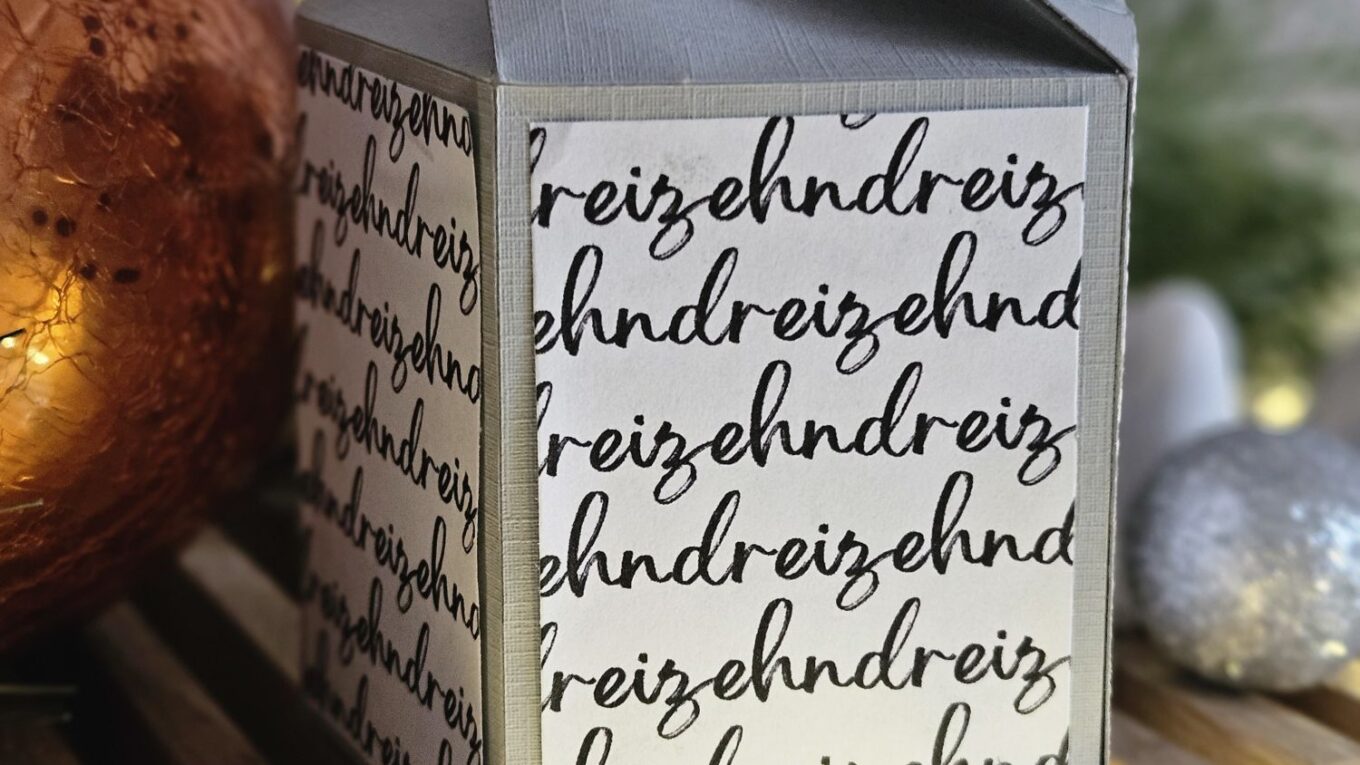 ehndreizehnd
dreizehndreiz
ehndreizehnd
dreizehndreiz
ehndreizehnd
dreizehndreiz
dreizehndreiz
ehndreizehnd
dreizehndreiz
ehndreizehnd
dreizehndreiz